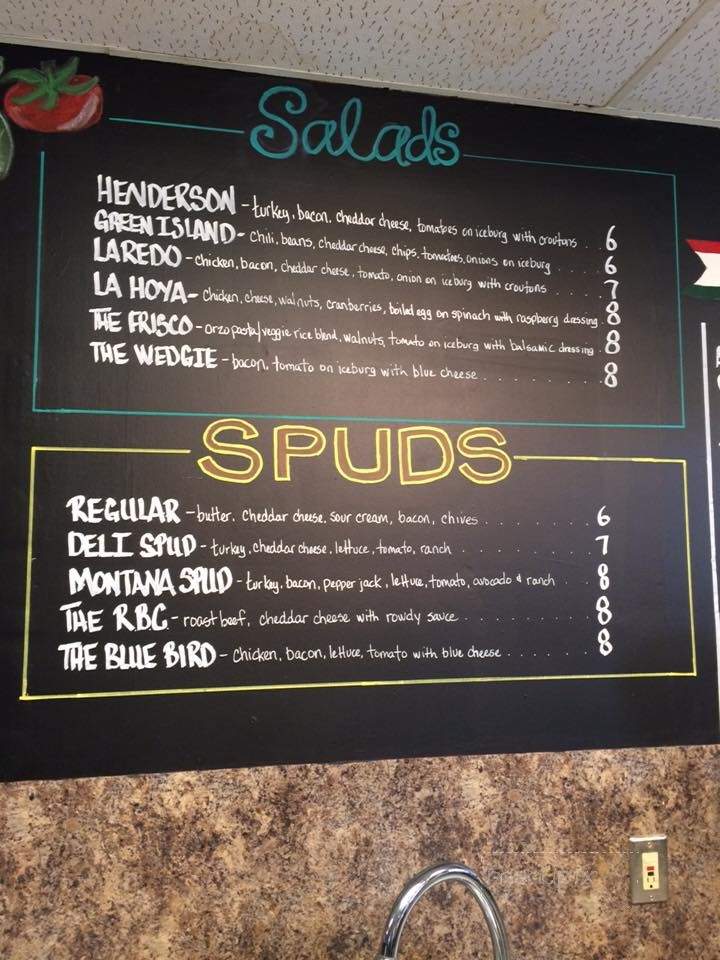 Salads
HENDERSON - turkey, bacon, cheddar cheese, tomatoes on iceburg with croutons . . 6
GREEN ISLAND - Chili, beans, cheddar cheese, chips, tomatoes, onions on iceburg . . . . . 6
LAREDO - chicken, bacon, cheddar cheese, tomato, onion on iceburg with croutons . . . . . 7
LA HOYA - chicken, cheese, walnuts, cranberries, boiled egg on spinach with raspberry dressing . 8
THE FRISCO - orzo pasta/veggie rice blend, walnuts, tomato on iceburg with balsamic dressing . 8
THE WEDGIE - bacon, tomato on iceburg with blue cheese . . . . . . . . . . 8
SPUDS
REGULAR - butter, cheddar cheese, sour cream, bacon, chives . . . . . . . . 6
DELI SPUD - turkey, cheddar cheese, lettuce, tomato, ranch . . . . . . . . . 7
MONTANA SPUD - turkey, bacon, pepper jack, lettuce, tomato, avocado & ranch . . 8
THE RBC - roast beef, cheddar cheese with rowdy sauce . . . . . . . . . 8
THE BLUE BIRD - chicken, bacon, lettuce, tomato with blue cheese . . . . . . . 8